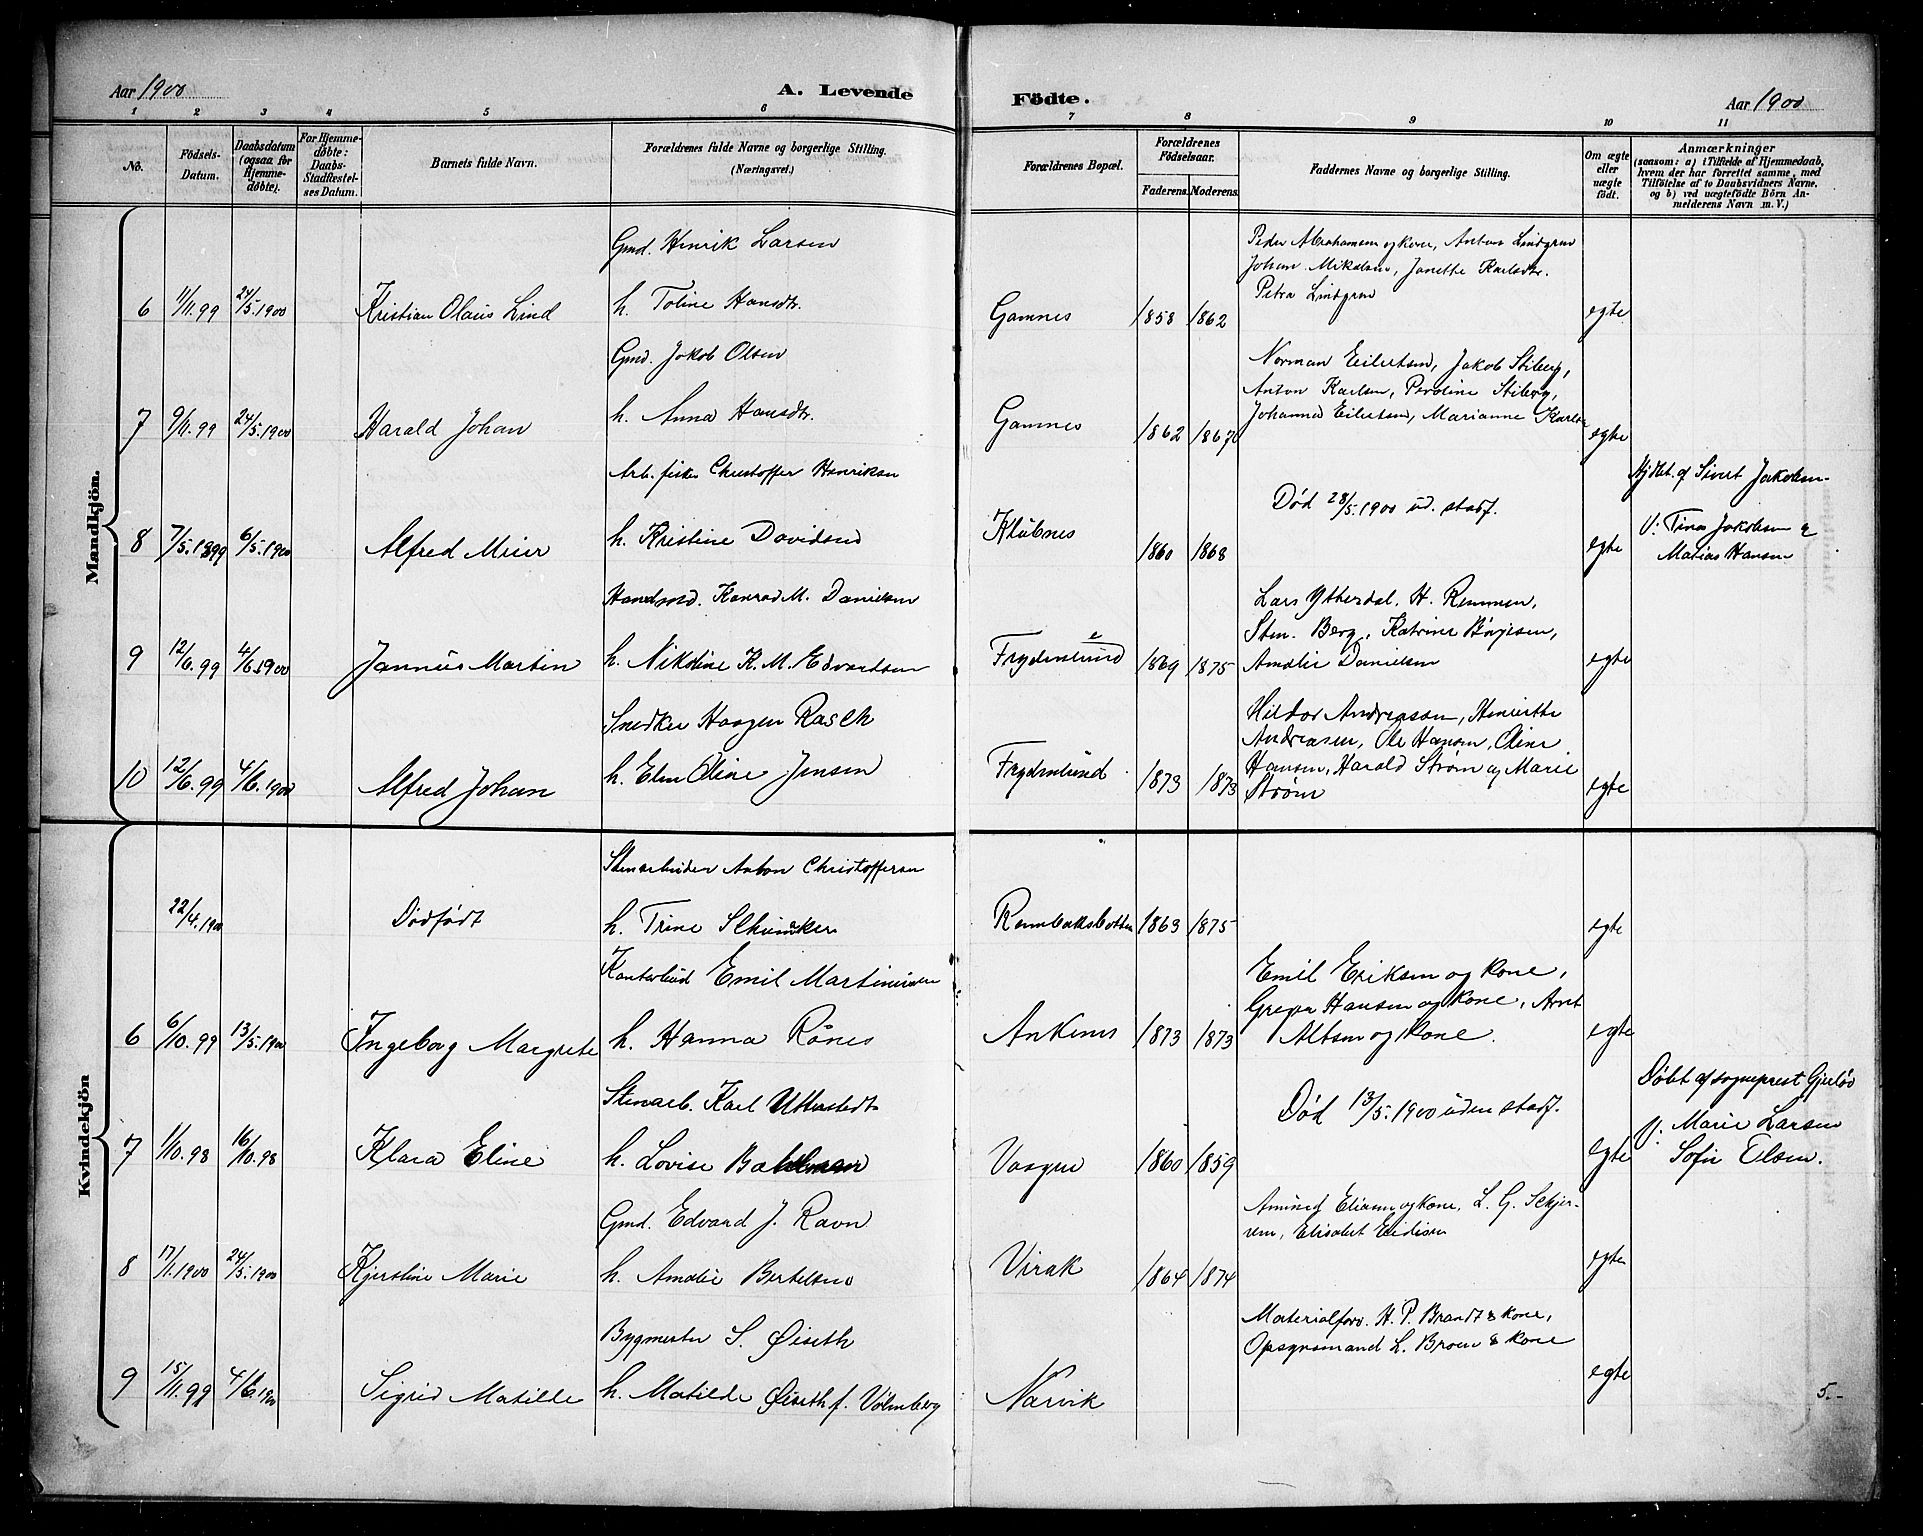 Aar 1900 A. Levende Födte. Aar 1900
1 2 3 4 5 6 7 8 9 10 11
No. Födsels-Datum. Daabsdatum (ogsaa for Hjemmedøbte). For Hjemmedøbte: Daabs-Stadfæstelses Datum. Barnets fulde Navn. Forældrenes fulde Navne og borgerlige Stilling. (Næringsvei.) Forældrenes Bopæl. Forældrenes Födselsaar. Faderens. Moderens. Faddernes Navne og borgerlige Stilling. Om ægte eller uægte födt. Anmærkninger (saasom: a) i Tilfælde af Hjemmedaab, hvem der har forrettet samme, med Tilföielse af to Daabsvidners Navne, og b) ved uægtefödte Börn Anmelderens Navn m. V.)
Mandkjön.
Gmd. Henrik Larsen Peder Abrahamsen og kone, Anton Lindgren
Johan Mikalsen, Janette Karlsdtr.
Petra Lindgren
6 11/11.99 24/5.1900 Kristian Olaus Lind h. Toline Hansdtr. Gamnes 1858 1862 egte
Gmd. Jakob Olsen Norman Eilertsen, Jakob Stiberg,
Anton Karlsen, Peroline Stiberg,
7 9/11.99 24/5.1900 Harald Johan h. Anna Hansdtr. Gamnes 1862 1867 Johanna Eilertsen, Marianne Karlsen egte
Arb. fisker Christoffer Henriksen Hjdbt. af Sivert Jakobsen
Død 28/5.1900 ud. stadf.
8 7/5.1899 6/5.1900 Alfred Meier h. Kristine Davidsen Klubnes 1860 1868 egte V: Tina Jakobsen &
Matias Hansen
Handsmd. Konrad M. Danielsen Lars Ytterdal, H. Remmen,
Sten. Berg, Katrine Børjesen,
9 12/6.99 4/6.1900 Jannus Martin h. Nikoline K. M. Edvartsen Frydenlund 1869 1875 Amalie Danielsen egte
Snedker Haagen Rasch Hildor Andreassen, Henriette
Andreasen, Ole Hansen, Oline
10 12/6.99 4/6.1900 Alfred Johan h. Elen Oline Jensen Frydenlund 1873 1873 Hansen, Harald Strøm og Marie
Strøm egte
Kvindekjön
Stenarbeider Anton Christoffersen
22/4.1900 Dødfødt h. Trine Rombaksbotten 1863 1875 egte
Kontorbud Emil Martinussen Emil Eriksen og kone,
Hansen og kone, Arnt
6 6/10.99 13/5.1900 Ingeborg Margrete h. Hanna Rønes Ankenes 1873 1873 Altsen og kone. egte
Stenarb. Karl Utterstedt Død 13/5.1900 uden stadf. Døbt af sogneprest Gjerløv
7 1/10.98 16/10.98 Klara Eline h. Lovise 1860 1859 egte V: Marie Larsen
Sofie Olsen.
Gmd. Edvard J. Ravn Amund Eliassen og kone, L. G. Skjerven, Elisabet
8 17/1.1900 24/5.1900 Kjerstine Marie h. Amalie Bertelsen Virak 1864 1874 egte
Bygmester S. Øiseth Materialforv. H. P. Brandt & kone,
Opsynsmand L. Broen & kone
9 15/11.99 4/6.1900 Sigrid Matilde h. Matilde Øiseth f. Volmberg Narvik egte 5.-